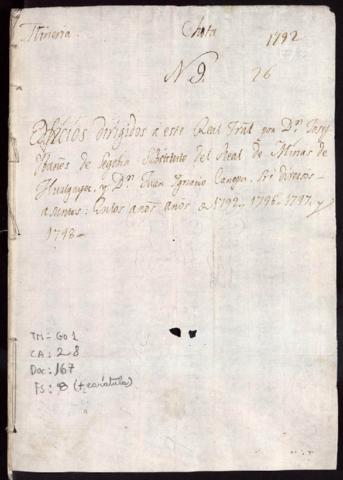 Mineria. Chota 1792
N 9. 26
Oficios dirigidos a este Real Tral por Dn Josef
Ybañes de Segobia Substituto del Real de Minas de
Hualgayoc, y Dn Juan Ignacio sre diversos
asuntos: en los años de 1792. 1796. 1797. y
1798.
TM-GO1
CA: 2-8
Doc: 167
FS: 8 (+ carátula)